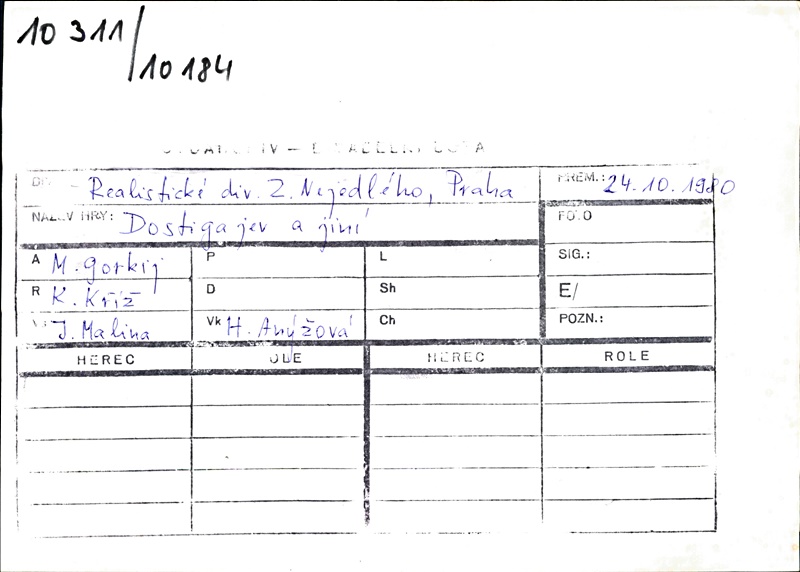 10 311/
10 184
Realistické div. Z. Nejedlého, Praha
PREM.: 24.10.1980
NÁZEV HRY: Dostigajev a jiní
FOTO
A M. Gorkij
P
L
SIG.:
R K. Kříž
D
Sh
E/
J. Malina
Vk H. Anýžová
Ch
POZN.:
HEREC
ROLE
HEREC
ROLE